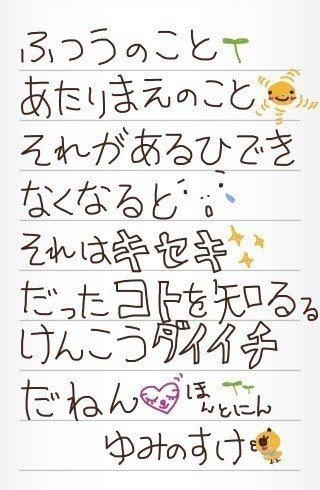 ふつうのこと
あたりまえのこと
それがあるひでき
なくなると
それはキセキ
だったコトを知るる
けんこうダイイチ
だねん ほんとにん
ゆみのすけ